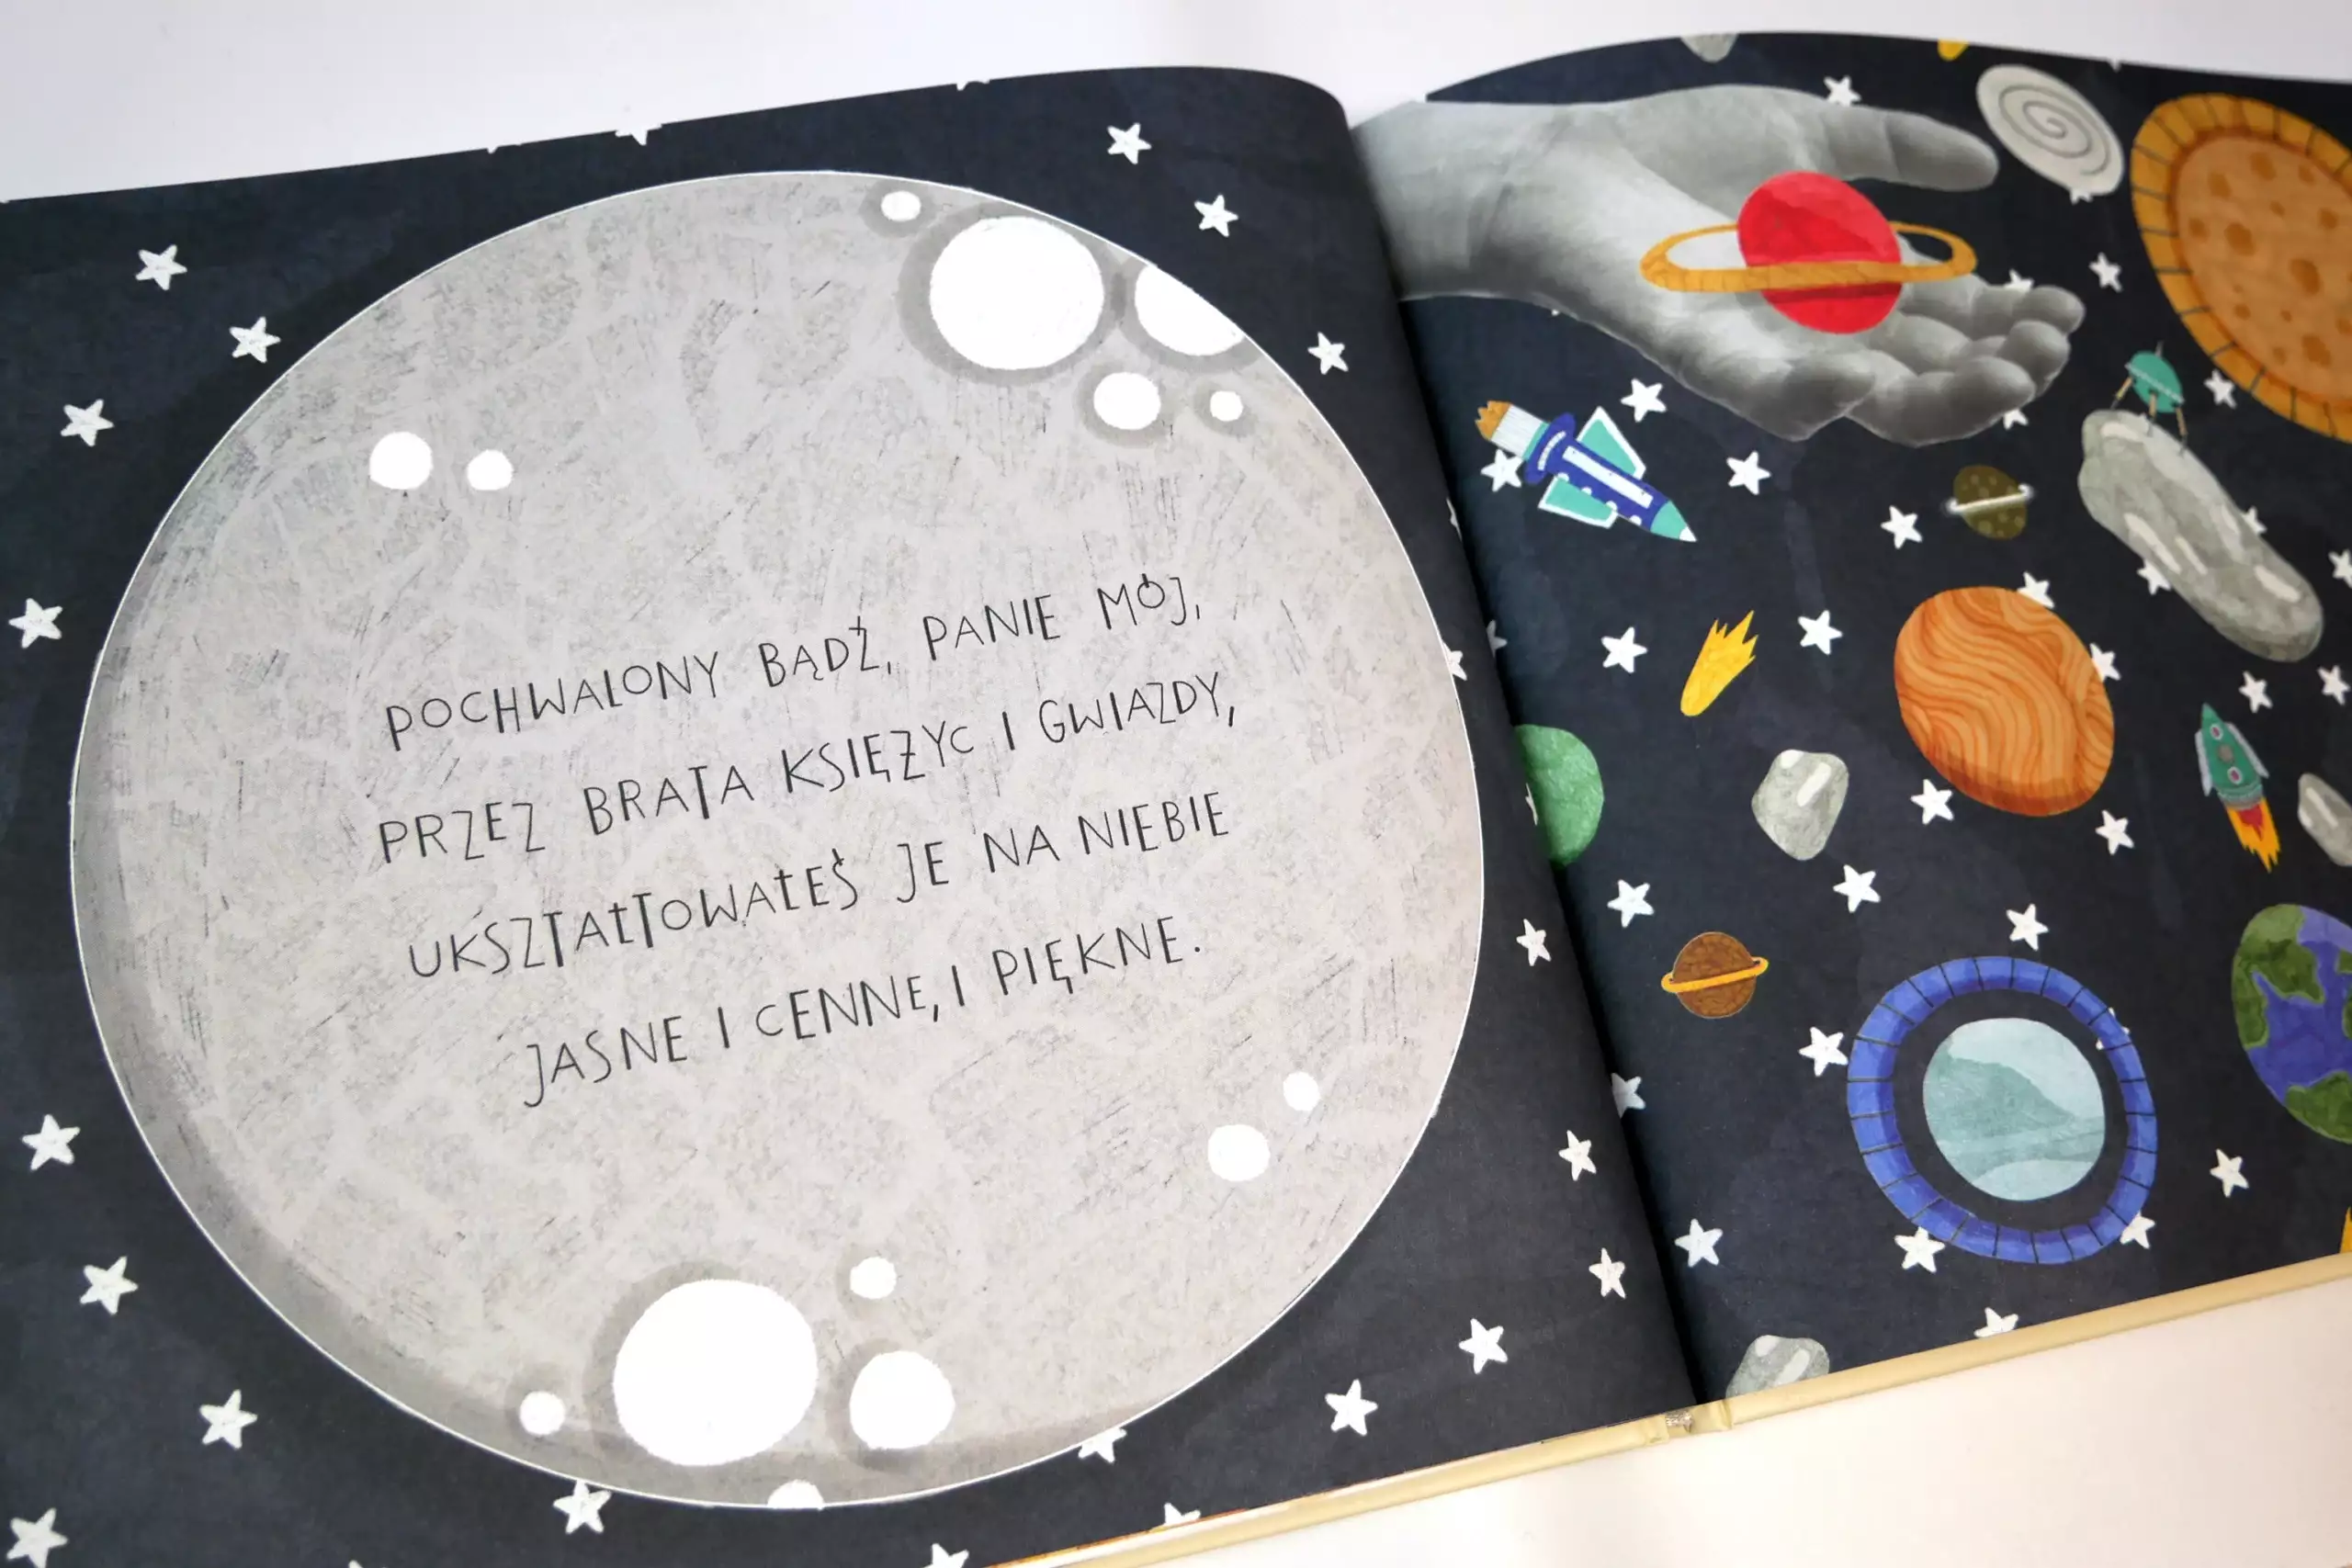 POCHWALONY BĄDŹ, PANIE MÓJ,
PRZEZ BRATA KSIĘŻYC I GWIAZDY,
UKSZTAŁTOWAŁEŚ JE NA NIEBIE
JASNE I CENNE, I PIĘKNE.